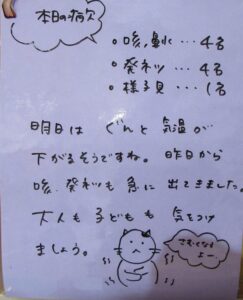 本日の病欠
。咳、鼻水 … 4名
。発ネツ … 4名
。様子見 … 1名
明日は ぐんと 気温が
下がるそうですね。昨日から
咳、発ネツも 急に 出てきました。
大人も 子どもも 気をつけ
ましょう。
さむくなる
よー